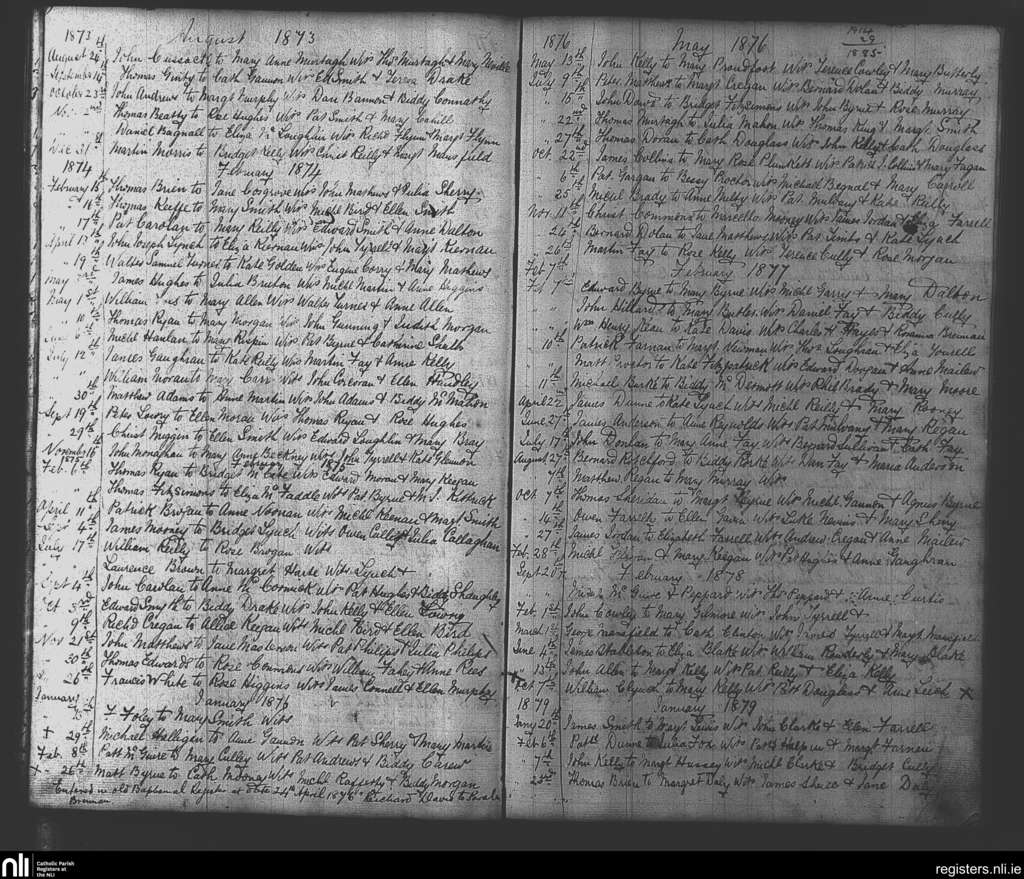 1873
August 1873
August 24th John Cusack to Mary Anne Murtagh Wits Thos Murtagh & Mary
September 14 Thomas Ginty to Cath Gannon Wits Ed Smith & Teresa Drake
October 23rd John Andrews to Margt Murphy Wits Dan Bannon & Biddy Connathy
Nov 2nd Thomas Beatty to Rose Hughes Wits Pat Smith & Mary Cahill
Daniel Bagnall to Eliza McLoughlin Wits Richd Flynn & Margt Flynn
Dec 31st Martin Morris to Bridget Kelly Wits Christ Reilly & Margt Mansfield
1874 February 1874
February 15th Thomas Brien to Jane Cosgrove Wits John Mathews & Julia Sherry
" 16th Thomas Keeffe to Mary Smith Wits Michl Bird & Ellen Smith
" 17th Pat Carolan to Mary Reilly Wits Edward Smith & Anne Dalton
April 13th John Joseph Lynch to Eliza Kiernan Wits John Tyrell & Margt Kiernan
" 19th Walter Samuel Turner to Kate Golden Wits Eugine Corry & Mary Mathews
May James Hughes to Julia Brereton Wits Michl Martin & Anne Higgins
May 1st William to Mary Allen Wits Walter Turner & Anne Allen
" 10th Thomas Ryan to Mary Morgan Wits John Gunning & Judith Morgan
6th Michl Hanlan to Mary Rispin Wits Pat Byrne & Catherine Smith
July 12th James Gaughran to Kate Reilly Wits Martin Fay & Anne Kelly
" " William to Mary Carr Wits John Corcoran & Ellen Hindley
30th Matthew Adams to Anne Martin Wits John Adams & Biddy McMahon
Sept 19th Peter Leary to Ellen Moran Wits Thomas Ryan & Rose Hughes
" 29th Christ Miggin to Ellen Smith Wits Edward Loughlin & Mary Bray
November 16th John Monaghan to Mary Anne Beckney Wits John Tyrrell & Kate Glennon
1875 February 1875
Feb. 6th Thomas Ryan to Bridget McCabe Wits Edward Moran & Mary Keegan
" " Thomas Fitzsimons to Eliza McFaddle Wits Pat Byrne & M. J.
April 11th Patrick Brogan to Anne Noonan Wits Michl Keenan & Margt Smith
4th James Mooney to Bridget Lynch Wits Owen Cully & Julia Callaghan
July 17th William Reilly to Rose Brogan Wits
" Laurence Brown to Margret Harte Wits Lynch &
Sept 4th John Carolan to Anne McCormick Wits Pat Hughes & Biddy Shaughley
Oct 3rd Edward Smyth to Biddy Drake Wits John Kelly & Ellen
" 9th Richd Cregan to Alice Keegan Wits Michl Bird & Ellen Bird
Nov 21st John Matthews to Jane Masterson Wits Pat Philips & Julia Philips
" 30th Thomas Edwards to Rose Cummins Wits William Fahey & Anne Rees
" 26th Francis White to Rose Higgins Wits James Connell & Ellen Murphy
January January 1876
25th F Foley to Mary Smith Wits
+ 29th Michael Halligan to Anne Gannon Wits Pat Sherry & Mary Martin
Feb. 8th Patt McGuire to Mary Culley Wits Pat Andrews & Biddy Carew
x 26th Matt Byrne to Cath Mooney Wits Michl Rafferty & Biddy Morgan
Entered in old Baptismal Register at date 24th April 1876 Richard Davis to
Brennan
1876 May 1876
1914
29
1885
May 13th John Kelly to Mary Proudfoot Wits Terence Cowley & Mary Butterly
July 9th Peter Matthews to Margt Cregan Wits Bernard Dolan & Biddy Murray
" 15th John Dowd to Bridget Fitzsimons Wits John Byrne & Rose Murray
" 22nd Thomas Murtagh to Julia Mahon Wits Thomas King & Margt Smith
" 27th Thomas Doran to Cath Douglass Wits John Kelly & Cath Douglass
Oct 22nd James Collins to Mary Rose Plunkett Wits Patrick J. Collins & Mary Fagan
" 6th Pat Gargan to Bessy Proctor Wits Michael Begnal & Mary Carroll
" 25 Michl Brady to Anne Nulty Wits Pat Mulvany & Kate Reilly
Nov 11th Christ Commons to Marcella Mooney Wits James Jordan & Eliza Farrell
" 24th Bernard Dolan to Jane Matthews Wits Pat Timbs & Kate Lynch
" 26th Martin Fay to Rose Kelly Wits Terence Cully & Rose Morgan
Feb 7th February 1877
Feb 7th Edward Byrne to Mary Byrne Wits Michl Garry & Mary Dalton
" " John Hillard to Mary Butler Wits Daniel Fay & Biddy Cully
" " Wm Henry to Kate Davis Wits Charles & Rosanna Brennan
" 10th Patrick Farnan to Margt Newman Wits Thos Loughran & Eliza Yourell
" " Matt Proctor to Kate Fitzpatrick Wits Edward Dorran & Anne Marlew
" 11th Michael Burke to Biddy McDermott Wits Phil Brady & Mary Moore
April 22 James Dunne to Kate Lynch Wits Michl Reilly & Mary Rooney
June 27th James Anderson to Anne Reynolds Wits Pat Mulvany & Mary Regan
July 17th John Donlan to Mary Anne Fay Wits Bernard Sullivan & Cath Fay
August 27th Bernard Rotchford to Biddy Rorke Wits Dan Fay & Maria Anderson
" 7th Matthew Regan to Mary Murray Wits
Oct 7th Thomas Sheridan to Margt Byrne Wits Michl Gannon & Agnes Byrne
" 14th Owen Farrell to Ellen Gavin Wits Luke Nevins & Mary Sherry
" 27 James Jordan to Elizabeth Farrell Wits Andrew Cregan & Anne Marlew
Feb. 28th Michl & Mary Keegan Wits Pat Hagins & Anne Gaughran
Sept 20th February 1878
McGuire & Peppard Wits Thos Peppard & Anne Curtis
Feb. 1st John Cowley to Mary Gilmore Wits John Tyrrell &
March 1st George Mansfield to Cath Clinton Wits Tyrrell & Margt Mansfield
June 4th James Stapleton to Eliza Blake Wits William & Mary Blake
" 13th John Allen to Margt Kelly Wits Pat Reilly & Eliza Kelly
x Oct 7th William Clynch to Mary Kelly Wits Patt Douglas & Anne Leich x
1879 January 1879
Jany 20th James Smith to Mary Lewis Wits John Clarke & Ellen Farrell
Feb 6th Patk Dunne Julia Fox Wits Patk Halpin & Margt Harnen
" 7th John Kelly to Margt Hussey Wits Michl Clarke & Bridget Cully
" 23rd Thomas Brien to Margret Daly Wits James & Jane Daly
nli Catholic Parish
Registers at
the NLI
registers.nli.ie